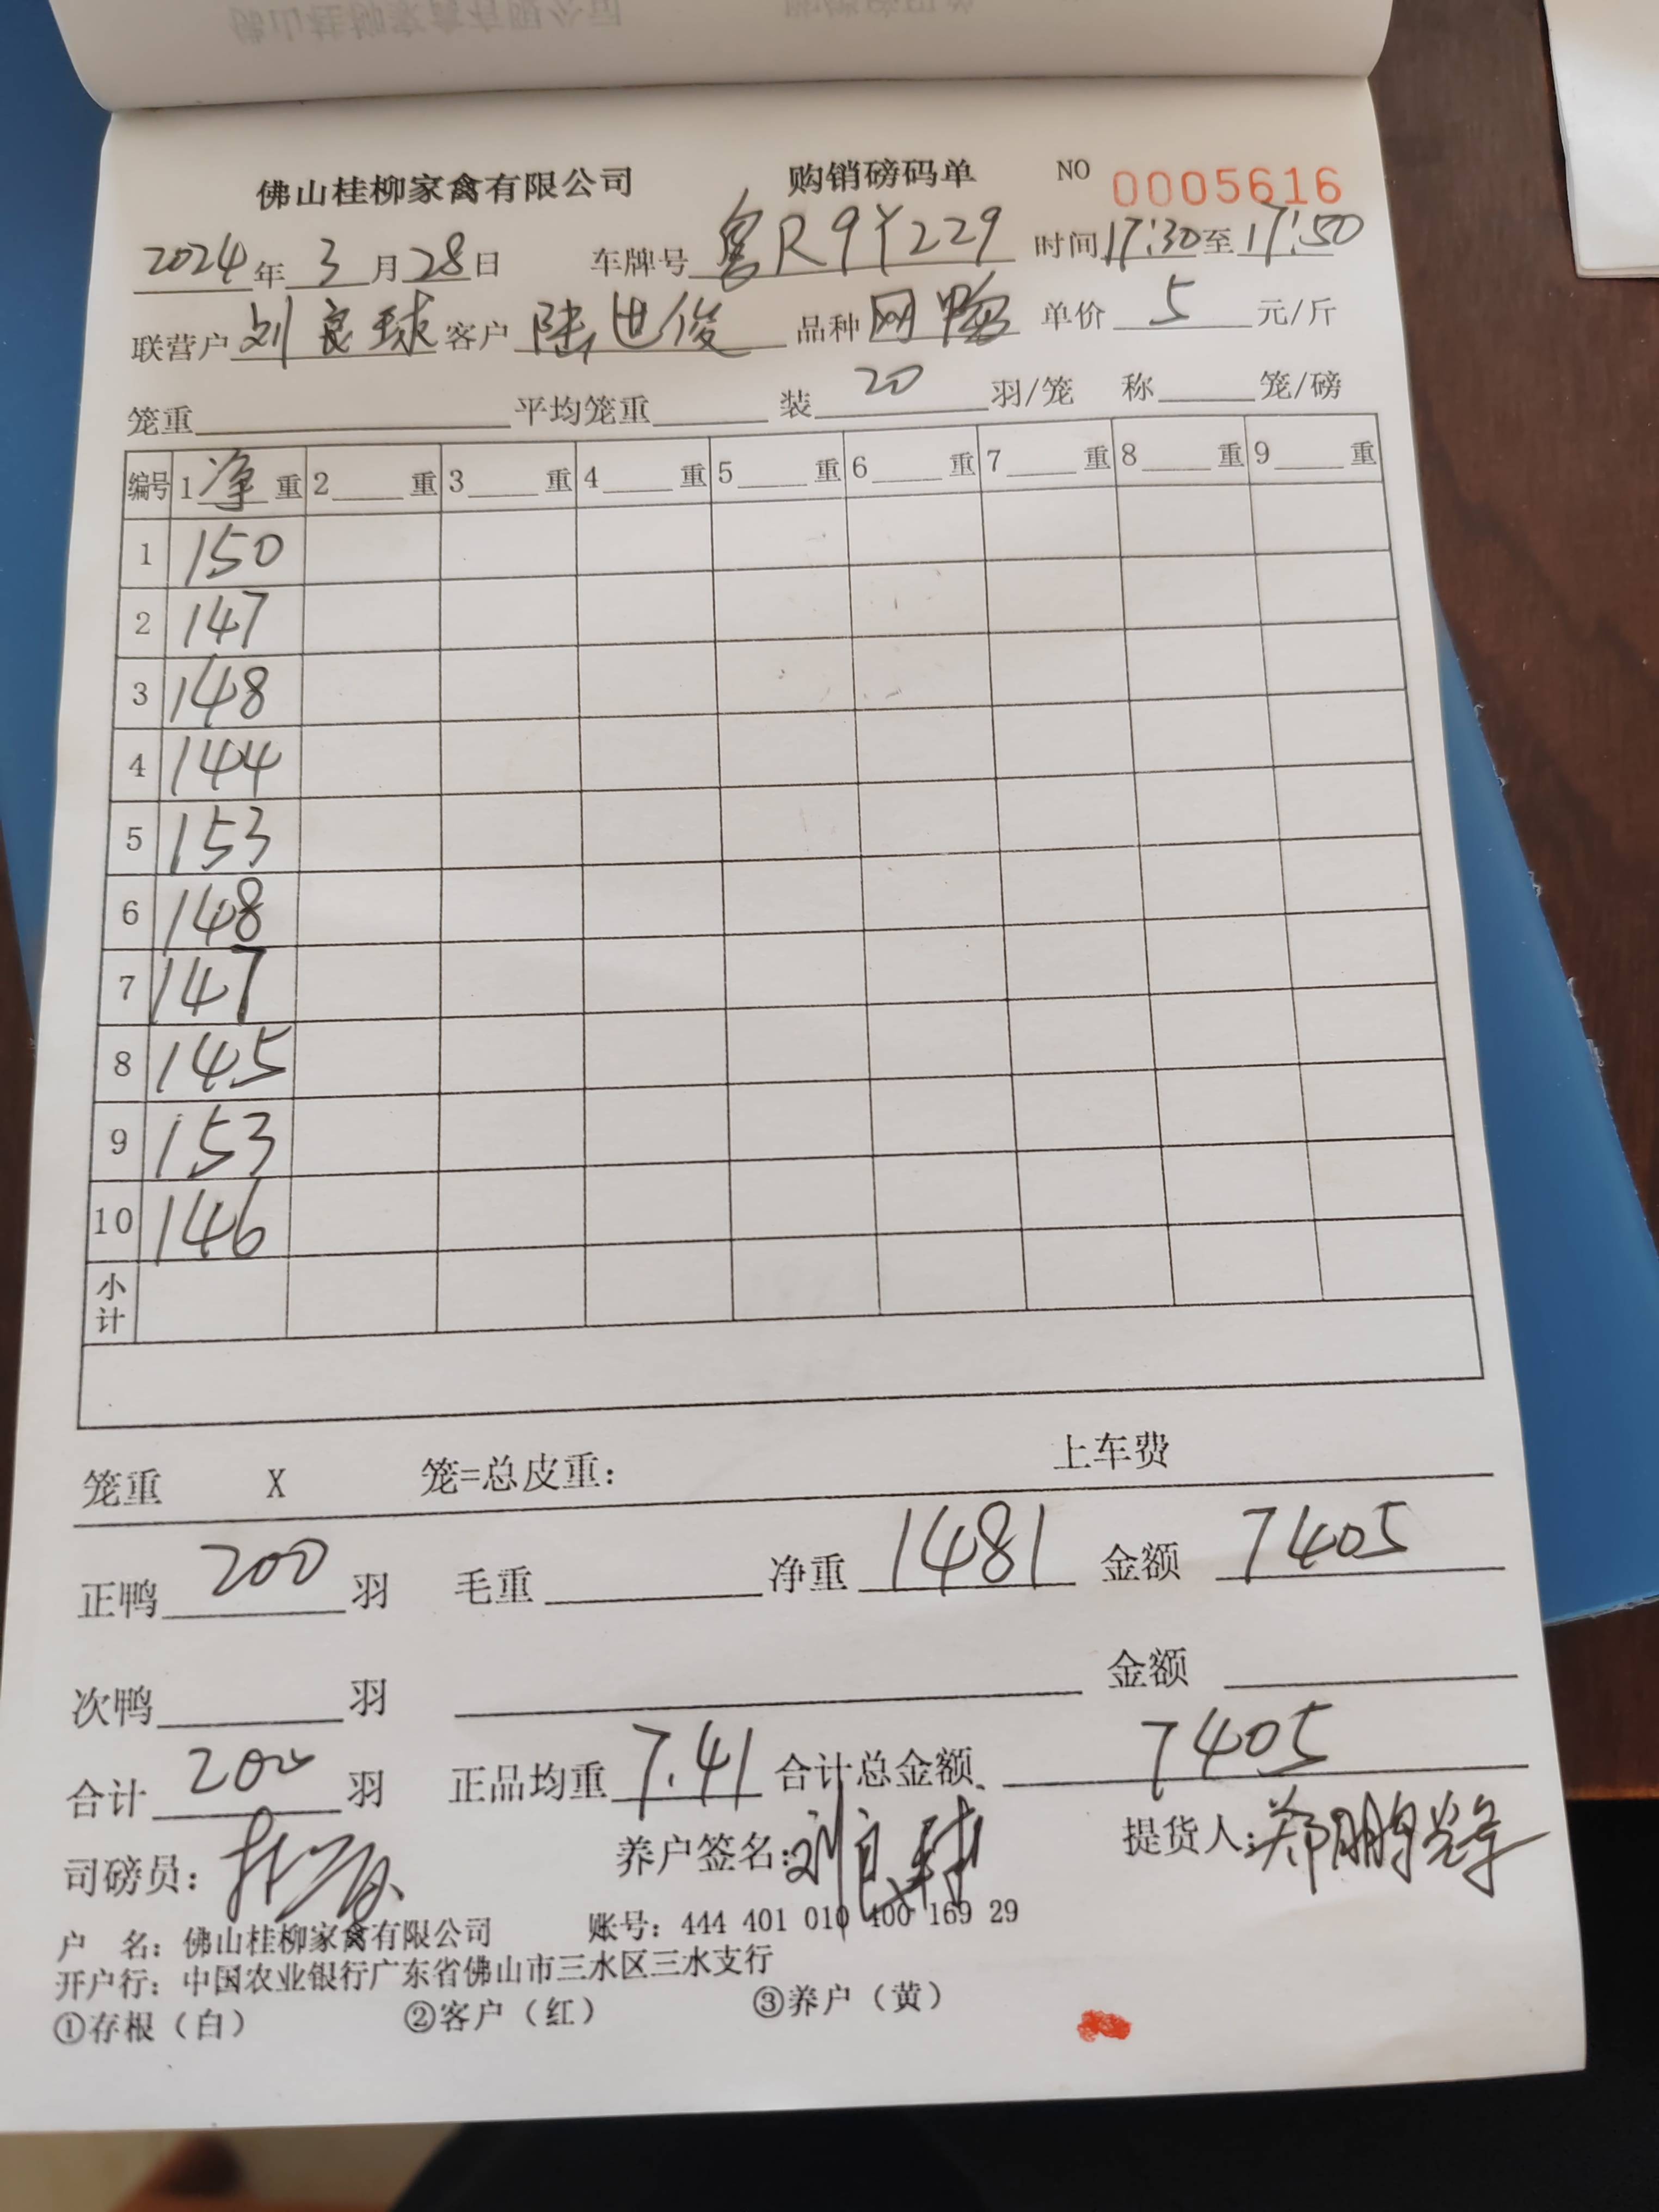 佛山桂柳家禽有限公司 购销磅码单 NO 0005616
2024年3月28日 车牌号 粤R9Y229 时间17:30至17:50
联营户 刘良球 客户 陆世俊 品种 网鸭 单价 5 元/斤
笼重 平均笼重 装 20 羽/笼 称 笼/磅
编号 1 净 重 2 重 3 重 4 重 5 重 6 重 7 重 8 重 9 重
1 150
2 147
3 148
4 144
5 153
6 148
7 147
8 145
9 153
10 146
小计
笼重 X 笼=总皮重: 上车费
正鸭 200 羽 毛重 净重 1481 金额 7405
次鸭 羽 金额
合计 200 羽 正品均重 7.41 合计总金额 7405
司磅员: 养户签名: 刘良球 提货人: 郑鹏辉
户 名: 佛山桂柳家禽有限公司 账号: 444 401 010 400 169 29
开户行: 中国农业银行广东省佛山市三水区三水支行
①存根（白） ②客户（红） ③养户（黄）